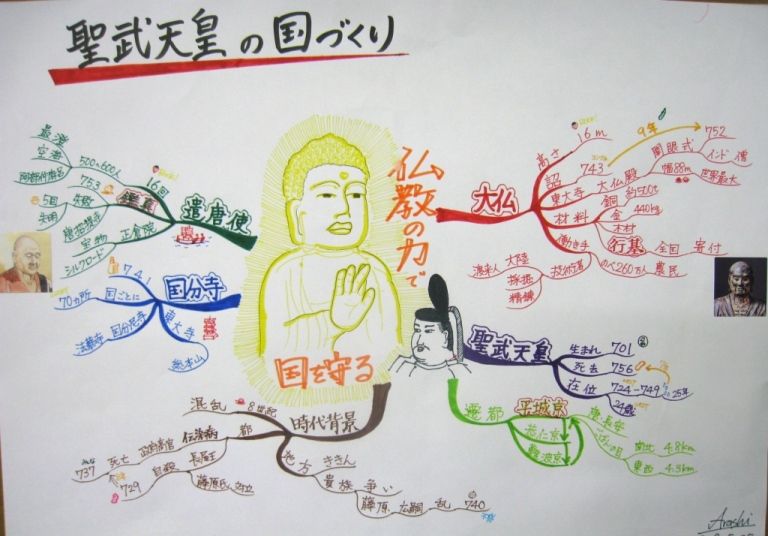 聖武天皇の国づくり
仏教の力で
国を守る
大仏
高さ
16m
詔
743
9年
752
開眼式
インド僧
東大寺
大仏殿
幅88m
世界最大
材料
銅
約500t
金
440kg
木材
働き手
行基
全国
寄付
のべ260万人
農民
技術者
渡来人
大陸
採掘
精錬
聖武天皇
生まれ
701
死去
756
在位
724〜749
25年
24歳
遷都
平城京
恭仁京
難波京
唐長安
南北
4.8km
東西
4.3km
時代背景
8世紀
混乱
都
伝染病
政府高官
死亡
737
長屋王
自殺
729
藤原氏
対立
地方
ききん
貴族
争い
藤原
広嗣
乱
740
国分寺
741
国ごとに
70カ所
国分尼寺
法華寺
東大寺
総本山
遣唐使
16回
500〜600人
最澄
空海
阿部仲麻呂
鑑真
753
失敗
5回
失明
唐招提寺
正倉院
宝物
シルクロード
Arashi